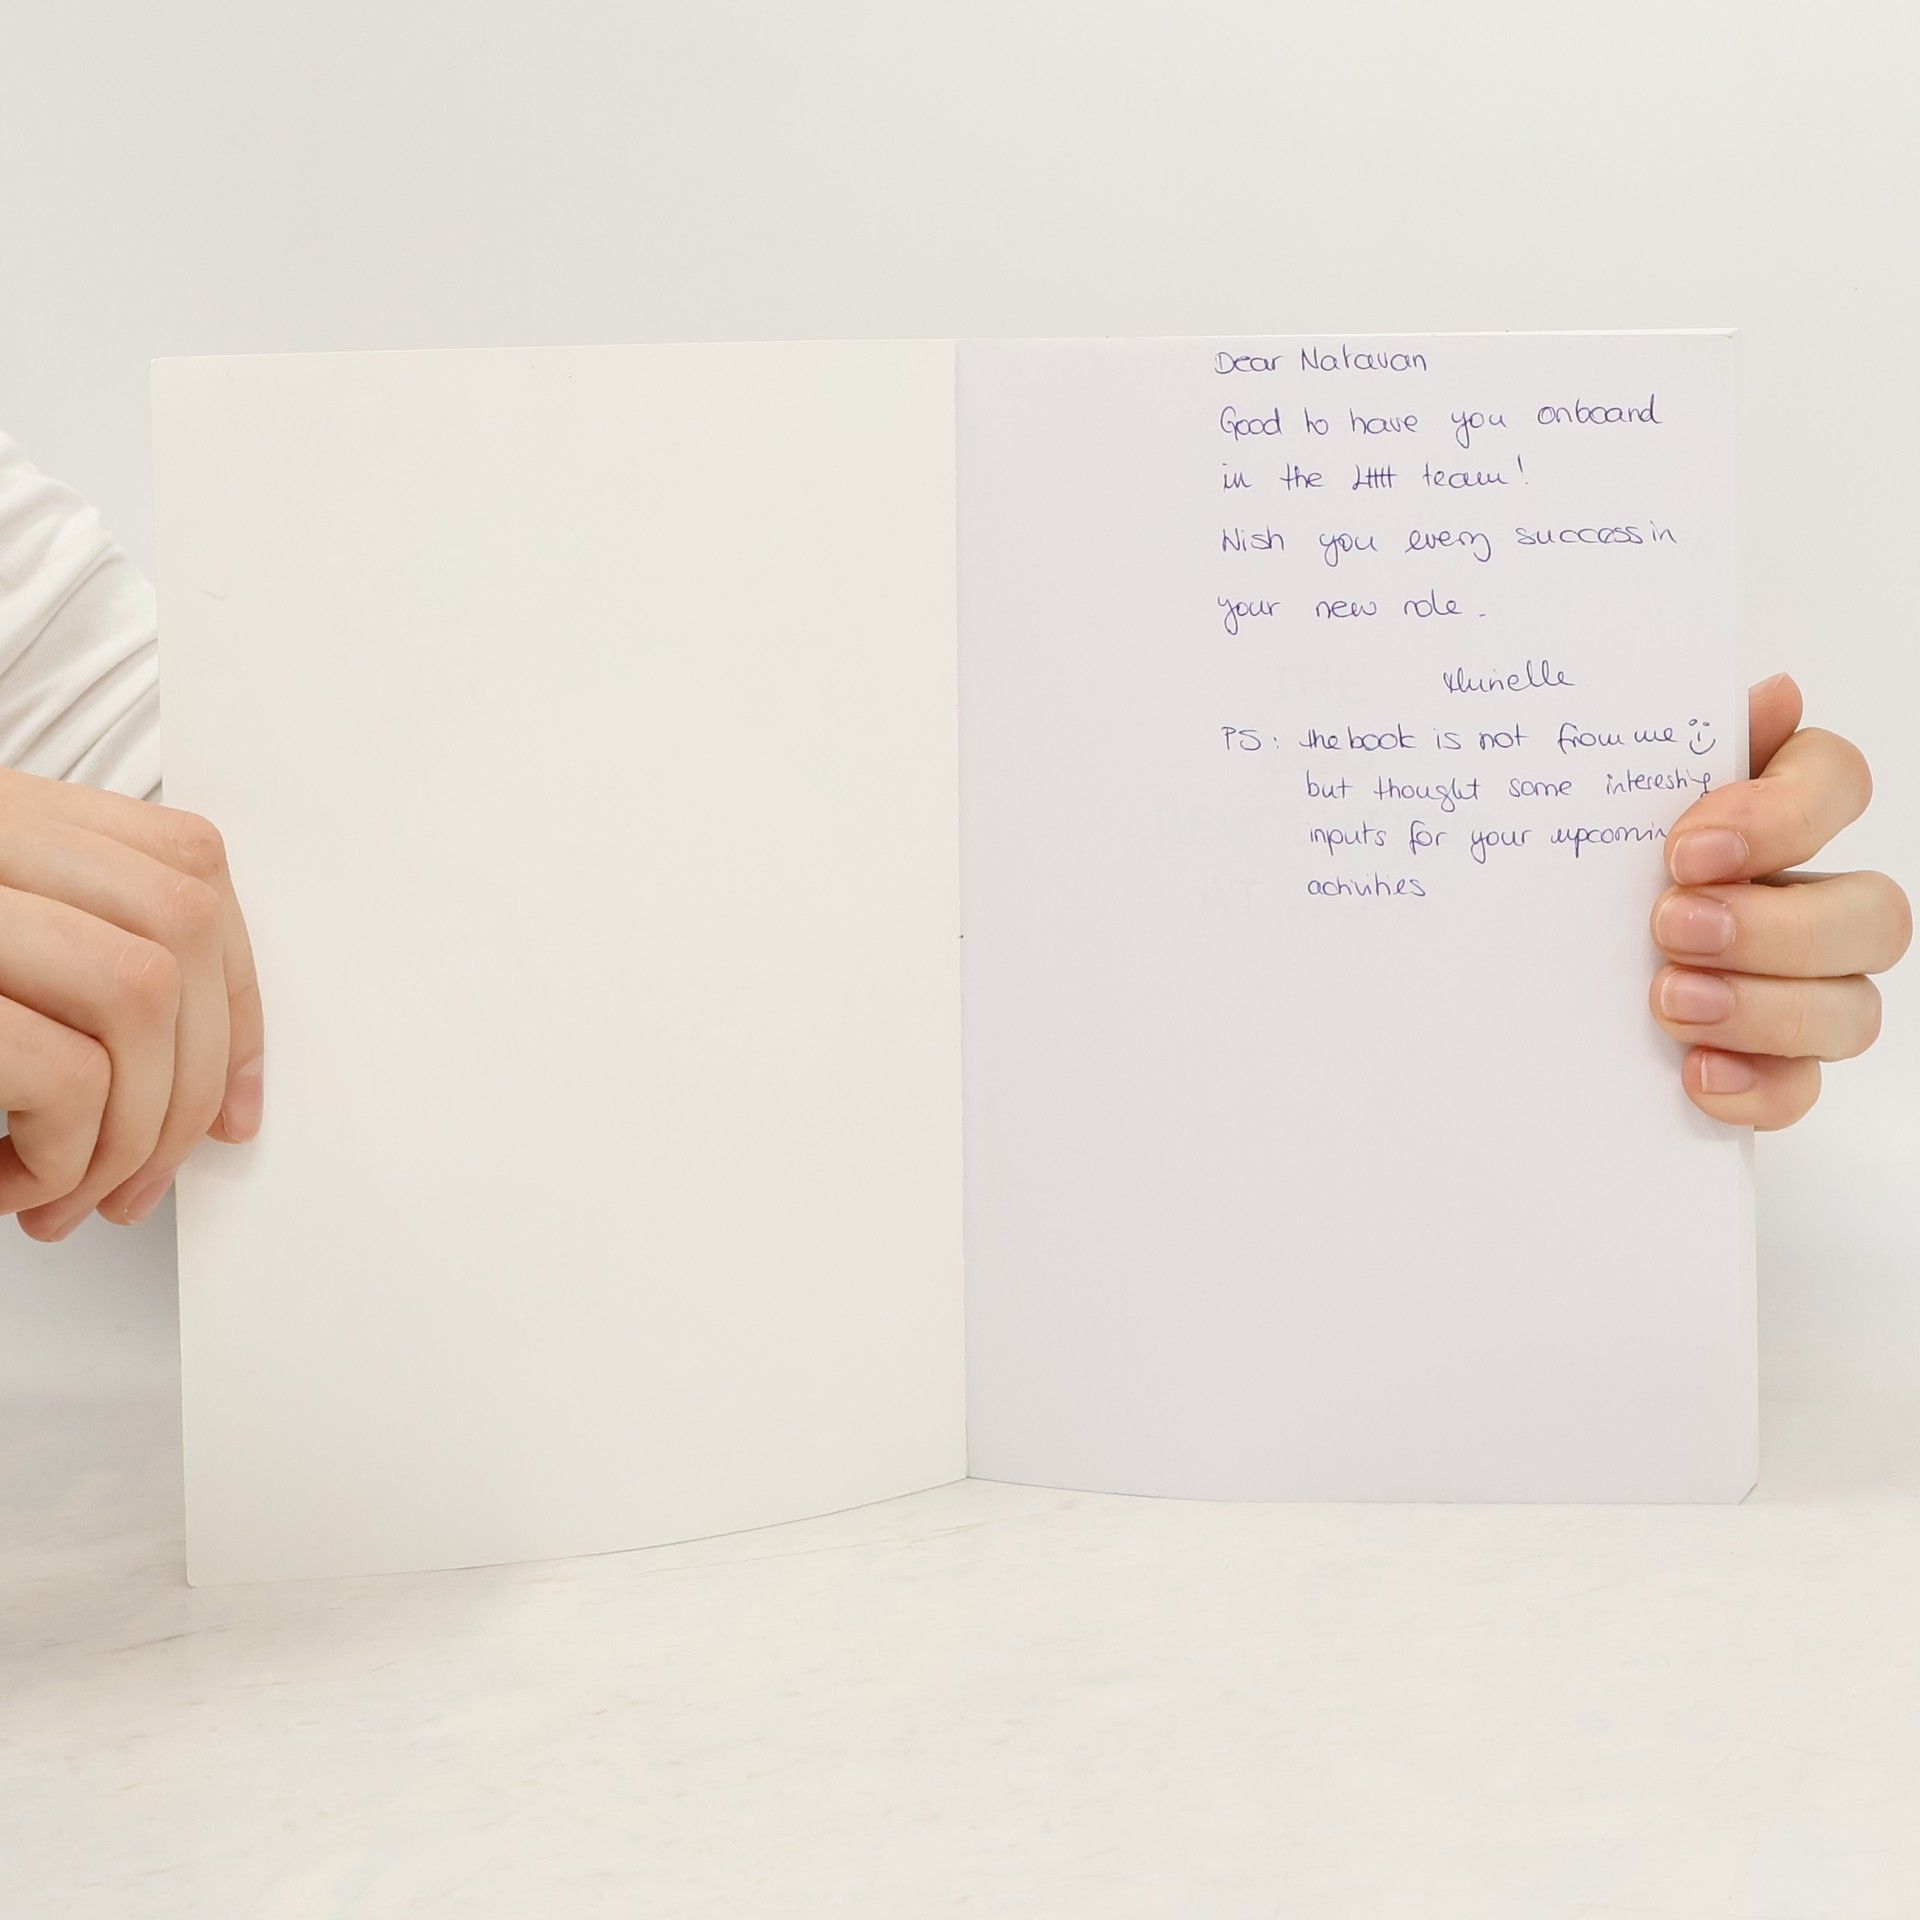 Dear Natavan
Good to have you onboard
in the team!
Wish you every success in
your new role.
Murielle
PS: the book is not from me
but thought some interesting
inputs for your
activities